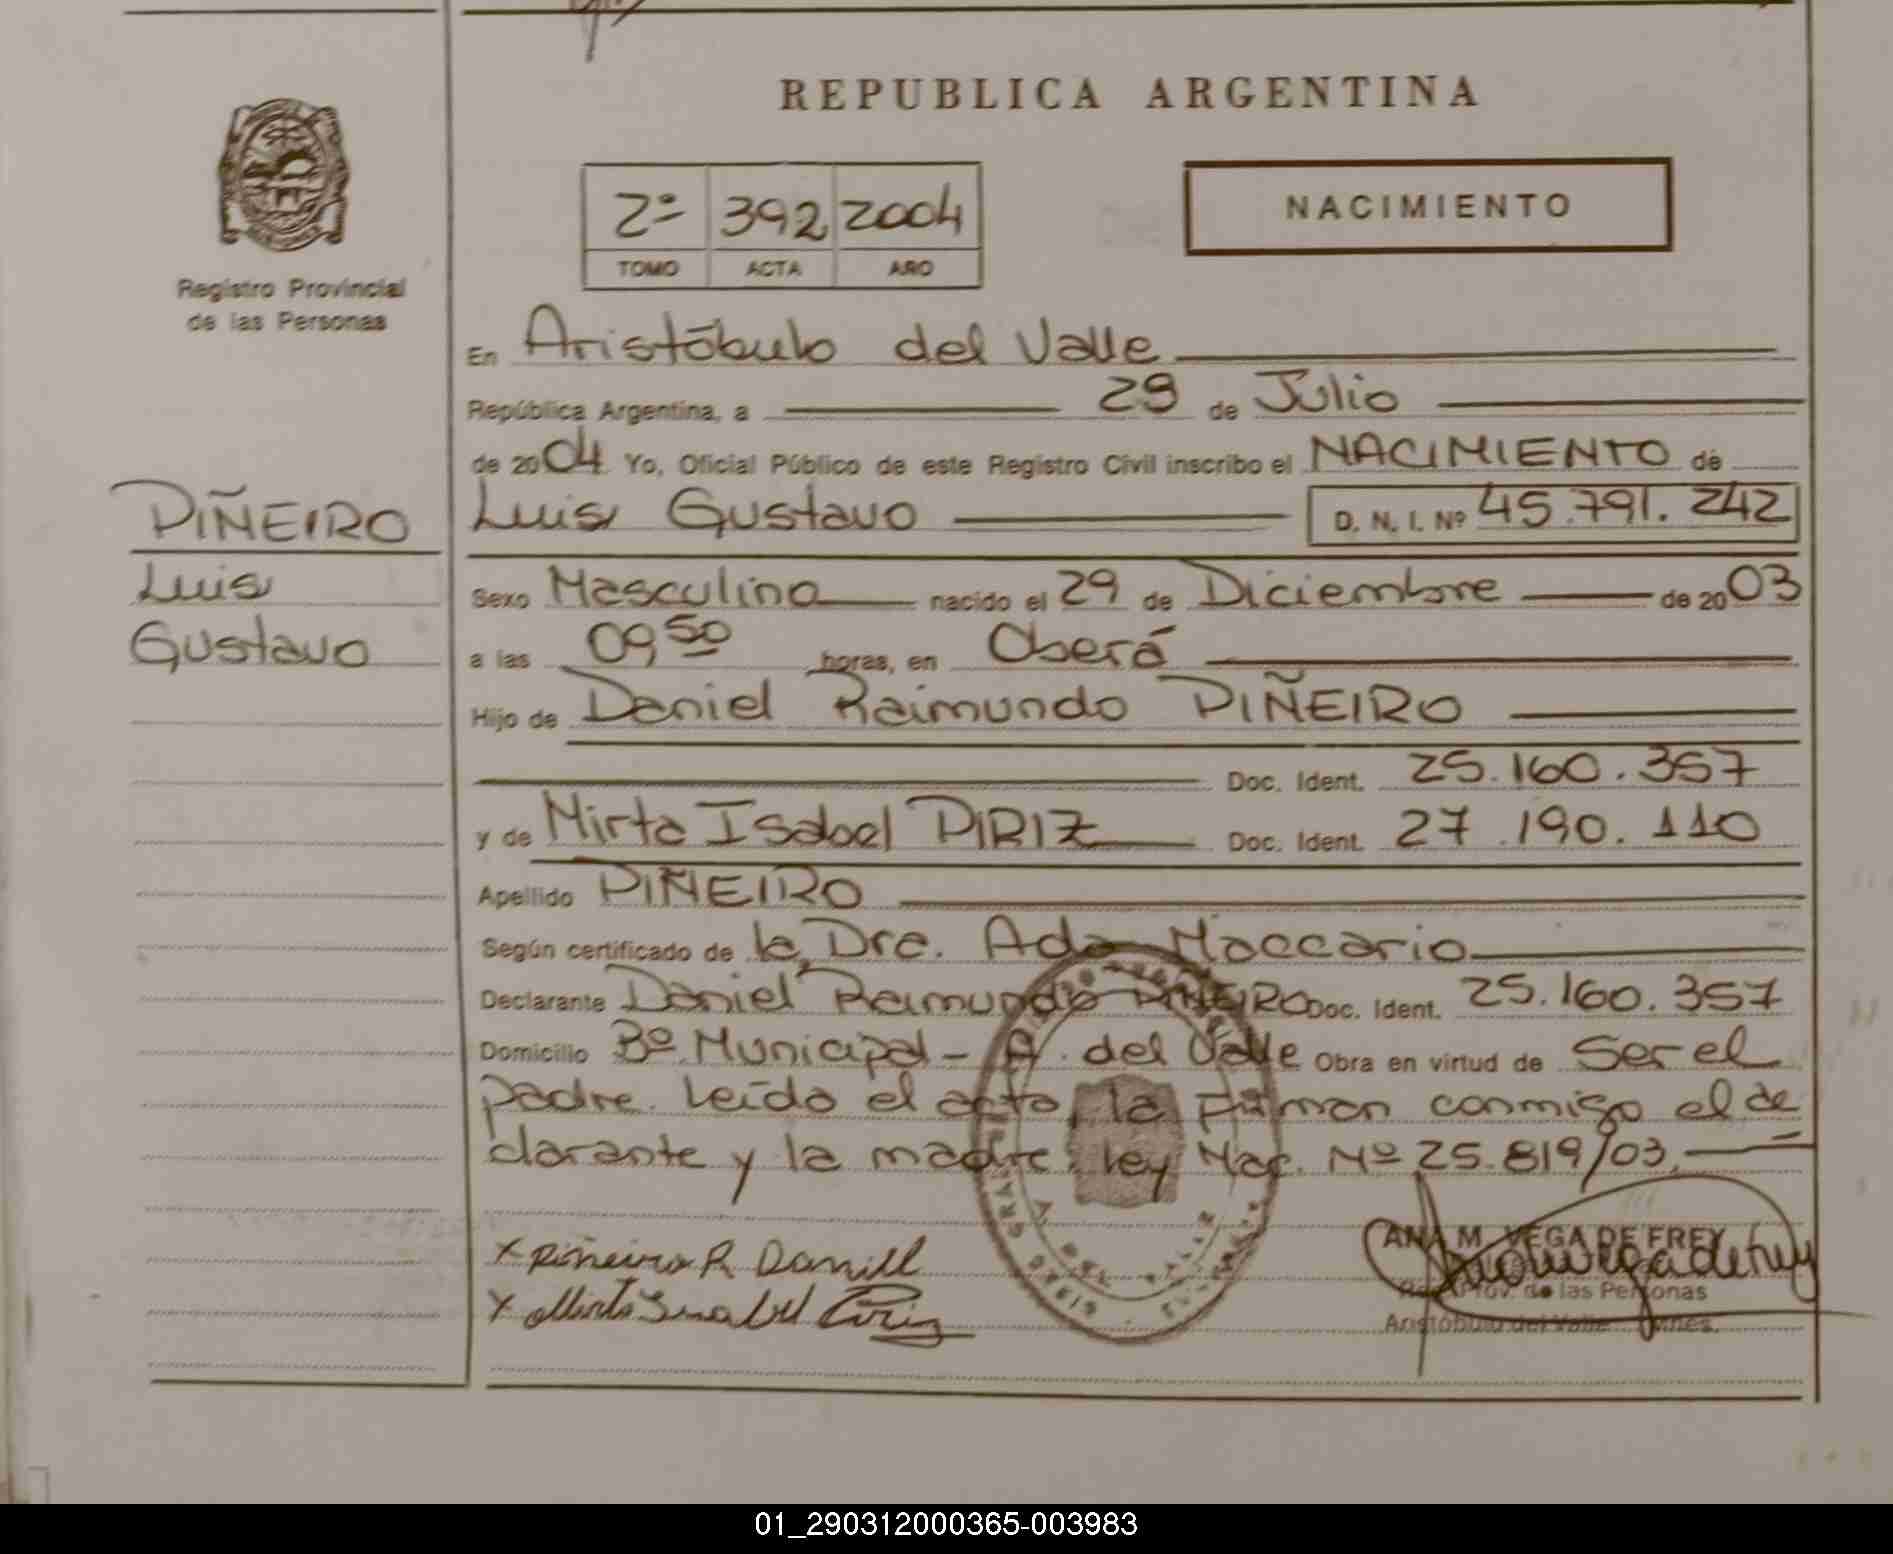 REPUBLICA ARGENTINA
Registro Provincial
de las Personas
2º 392 2004
TOMO ACTA AÑO
NACIMIENTO
En Aristóbulo del Valle
República Argentina, a 29 de Julio
de 2004 Yo, Oficial Público de este Registro Civil inscribo el NACIMIENTO de
PIÑEIRO
Luis
Gustavo
Luis Gustavo D. N. I. Nº 45.791.242
Sexo Masculino nacido el 29 de Diciembre de 2003
a las 09 50 horas, en Oberá
Hijo de Daniel Raimundo PIÑEIRO
Doc. Ident. 25.160.357
y de Mirta Isabel PIRIZ Doc. Ident. 27.190.110
Apellido PIÑEIRO
Según certificado de la Dra. Ada Maccario
Declarante Daniel Raimundo PIÑEIRO Doc. Ident. 25.160.357
Domicilio Bº Municipal - A. del Valle Obra en virtud de Ser el
padre. Leído el acta, la firman conmigo el de
clarante y la madre. Ley Nac. Nº 25.819/03.
x Piñeiro R. Daniel
x Mirta Isabel Piriz
ANA M. VEGA DE FREY
Prov. de las Personas
Aristóbulo del Valle
01_290312000365-003983